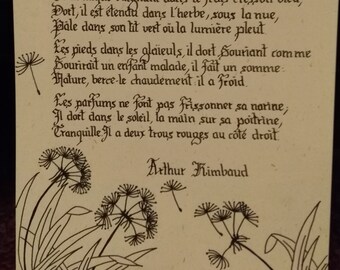 dans le frais cresson bleu,
Dort, il est étendu dans l'herbe, sous la nue,
Pâle dans son lit vert où la lumière pleut.
Les pieds dans les glaïeuls, il dort. Souriant comme
Sourirait un enfant malade, il fait un somme:
Nature, berce-le chaudement: il a froid.
Les parfums ne font pas frissonner sa narine;
Il dort dans le soleil, la main sur sa poitrine,
Tranquille. Il a deux trous rouges au côté droit.
Arthur Rimbaud